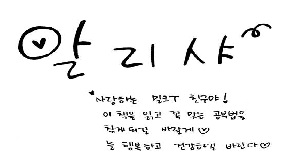 알리샤
사랑하는 밀크T 친구야!
이 책을 읽고 꼭 맞는 공부법을
찾게되길 바랄게♡
늘 행복하고 건강하길 바란다♡